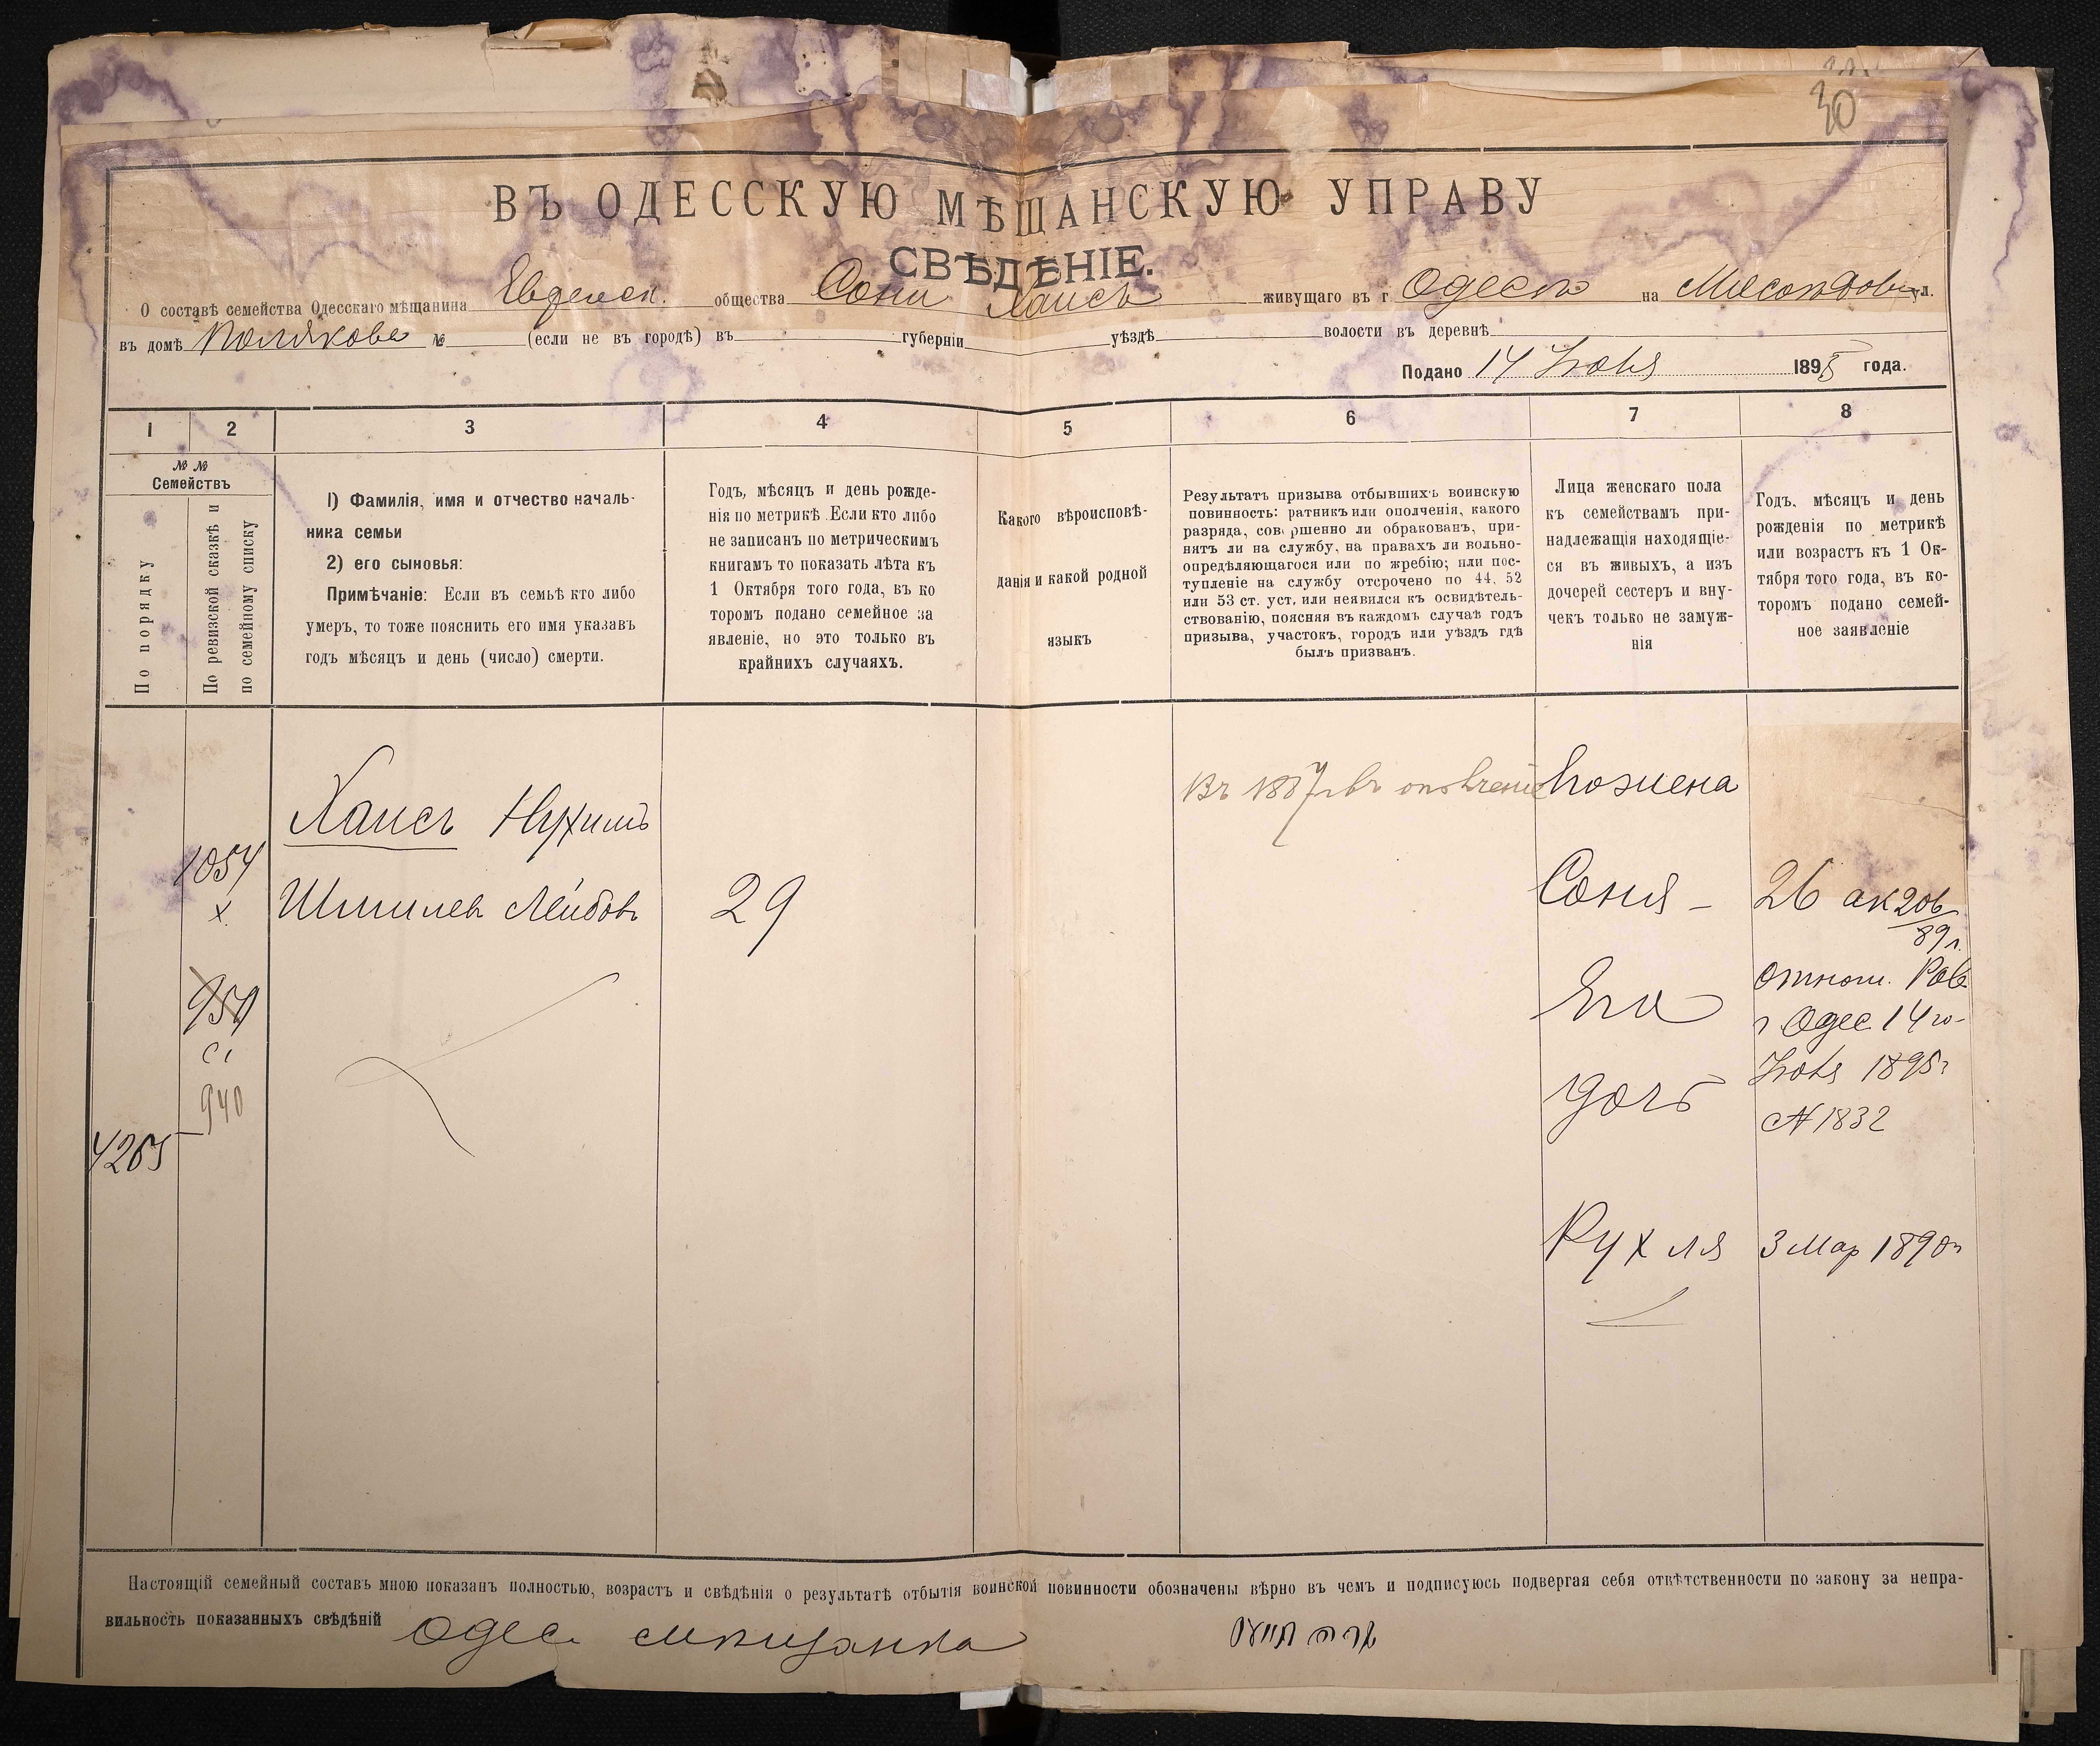 30
ВЪ ОДЕССКУЮ МѢЩАНСКУЮ УПРАВУ
СВѢДѢНІЕ.
О составѣ семейства Одесскаго мѣщанина Евдейск. общества Сони Хаисъ живущаго въ г Одессѣ на ул.
въ домѣ Полякова № (если не въ городѣ) въ губерніи уѣздѣ волости въ деревнѣ
Подано 14 Іюня 1895 года.
1 2 3 4 5 6 7 8
№ №
Семействъ
По порядку
По ревизской сказкѣ и
по семейному списку
1) Фамилія, имя и отчество началь-
ника семьи
2) его сыновья:
Примѣчаніе: Если въ семьѣ кто либо
умеръ, то тоже пояснить его имя указавъ
годъ мѣсяцъ и день (число) смерти.
Годъ, мѣсяцъ и день рожде-
нія по метрикѣ. Если кто либо
не записанъ по метрическимъ
книгамъ то показать лѣта къ
1 Октября того года, въ ко
торомъ подано семейное за
явленіе, но это только въ
крайнихъ случаяхъ.
Какого вѣроисповѣ-
данія и какой родной
языкъ
Результатъ призыва отбывшихъ воинскую
повинность: ратникъ или ополченія, какого
разряда, совершенно ли обракованъ, при-
нятъ ли на службу, на правахъ ли вольно-
опредѣляющагося или по жребію; или пос-
тупленіе на службу отсрочено по 44, 52
или 53 ст. уст. или неявился къ освидѣтель-
ствованію, поясняя въ каждомъ случаѣ годъ
призыва, участокъ, городъ или уѣздъ гдѣ
былъ призванъ.
Лица женскаго пола
къ семействамъ при-
надлежащія находящіе-
ся въ живыхъ, а изъ
дочерей сестеръ и вну-
чекъ только не замуж-
нія
Годъ, мѣсяцъ и день
рожденія по метрикѣ
или возрастъ къ 1 Ок-
тября того года, въ ко-
торомъ подано семей-
ное заявленіе
Хаисъ Нухимъ
Шмилевъ Лейбовъ
1054
х
29
950
940
4265
Въ 1887 въ ополченіе
Его жена
Соня
26 ак 206/89 г.
Его
дочь
отнош. Рав.
г Одес. 14го
Іюня 1895г
№ 1832
Рухля
3 Мар 1890г
Настоящій семейный составъ мною показанъ полностью, возрастъ и свѣдѣнія о результатѣ отбытія воинской повинности обозначены вѣрно въ чемъ и подписуюсь подвергая себя отвѣтственности по закону за непра-
вильность показанныхъ свѣдѣній Одес. мѣщанка